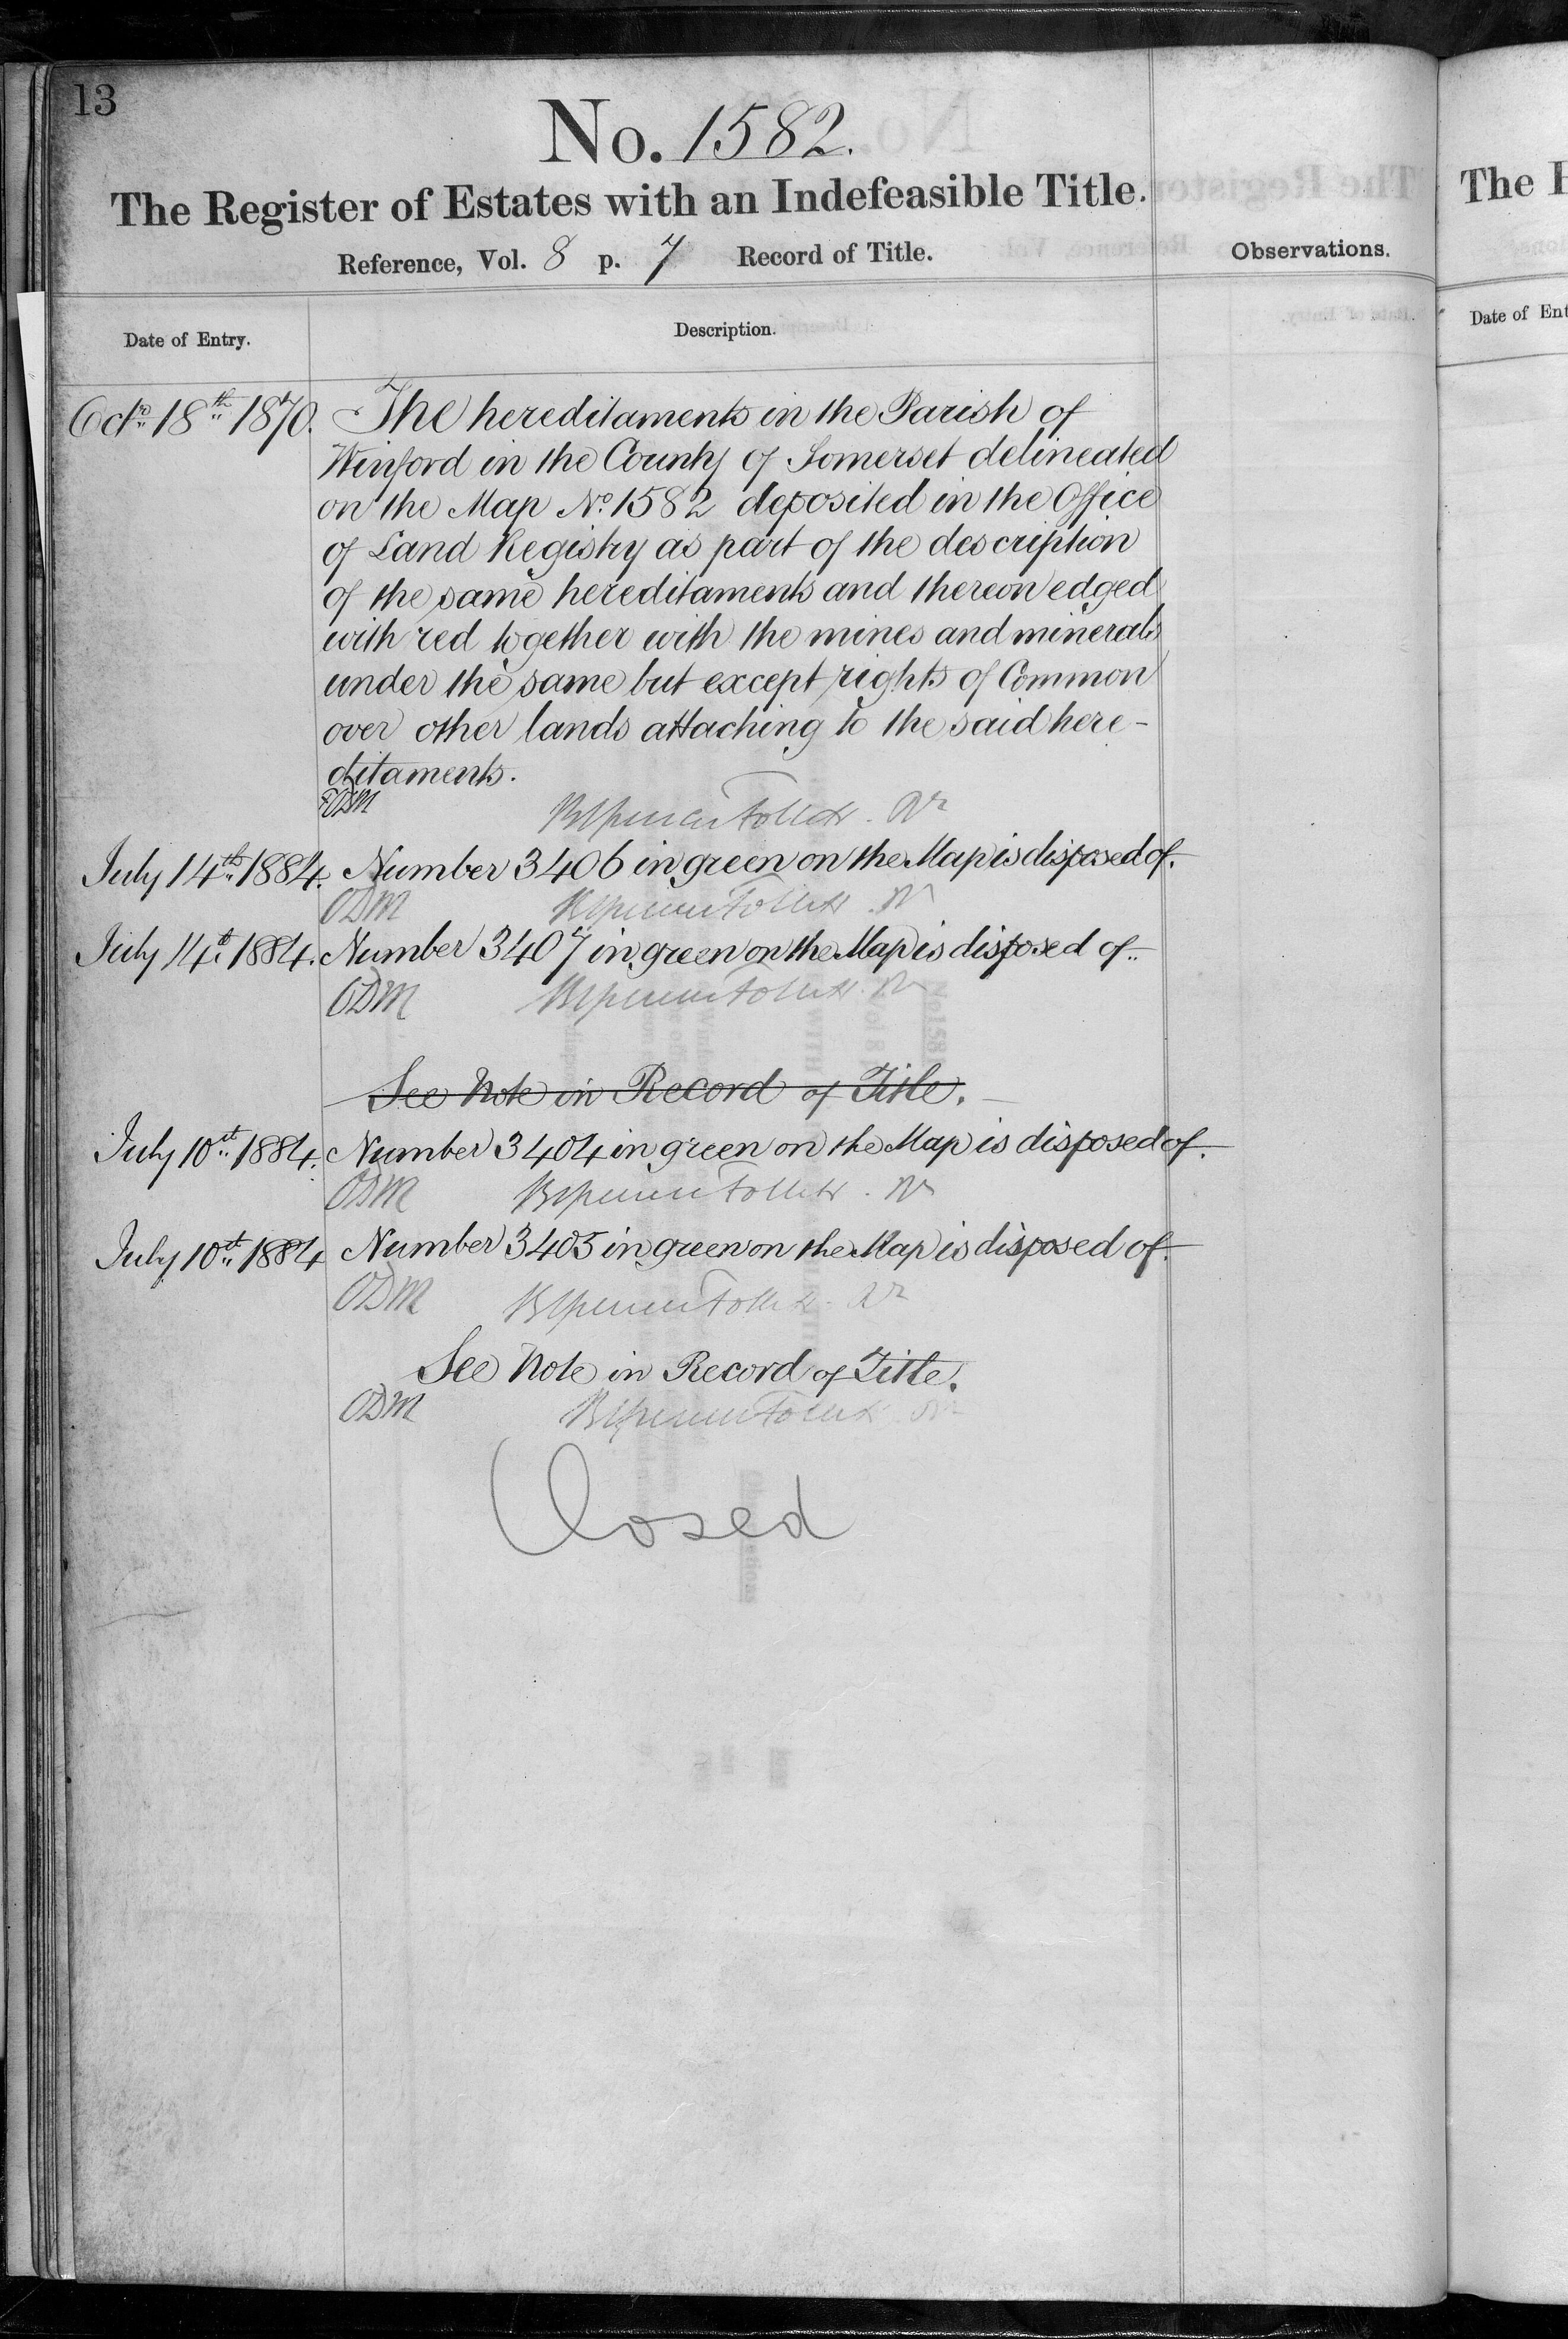 13
No. 1582.
The Register of Estates with an Indefeasible Title.
Reference, Vol. 8 p. 7 Record of Title.
Observations.
Date of Entry.
Description.
Octr. 18th 1870. The hereditaments in the Parish of
Winford in the County of Somerset delineated
on the Map No. 1582 deposited in the Office
of Land Registry as part of the description
of the same hereditaments and thereon edged
with red together with the mines and minerals
under the same but except rights of Common
over other lands attaching to the said here-
ditaments.
ODM
July 14th 1884. Number 3406 in green on the Map is disposed of.
ODM
July 14th 1884. Number 3407 in green on the Map is disposed of.
ODM
See Note in Record of Title.
July 10th 1884. Number 3404 in green on the Map is disposed of.
ODM
July 10th 1884 Number 3405 in green on the Map is disposed of.
ODM
See Note in Record of Title.
ODM
Closed
The
Date of Ent